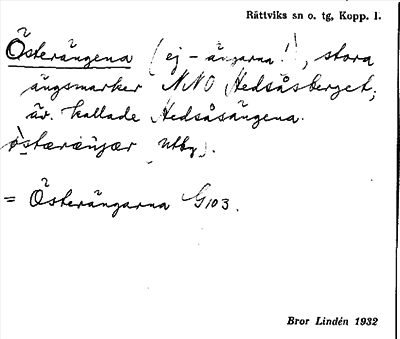 Rättviks sn o. tg, Kopp. l.
Österängena (ej -ängarna!), stora
ängsmarker NNO Hedsåsberget;
äv. kallade Hedsåsängena.
østærænjær utby.
= Österängarna G103.
Bror Lindén 1932